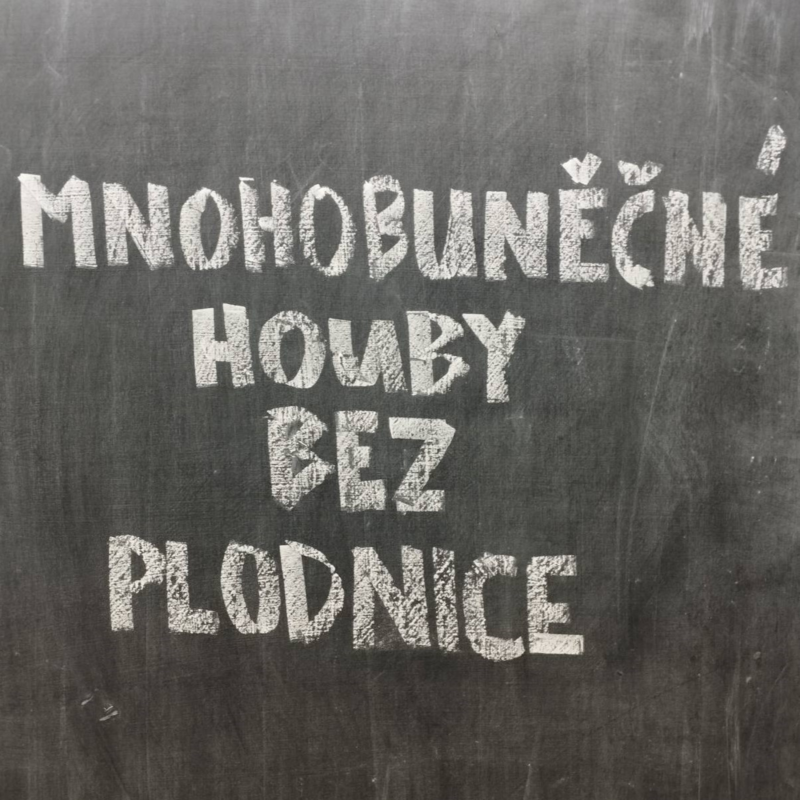 MNOHOBUNĚČNÉ
HOUBY
BEZ
PLODNICE